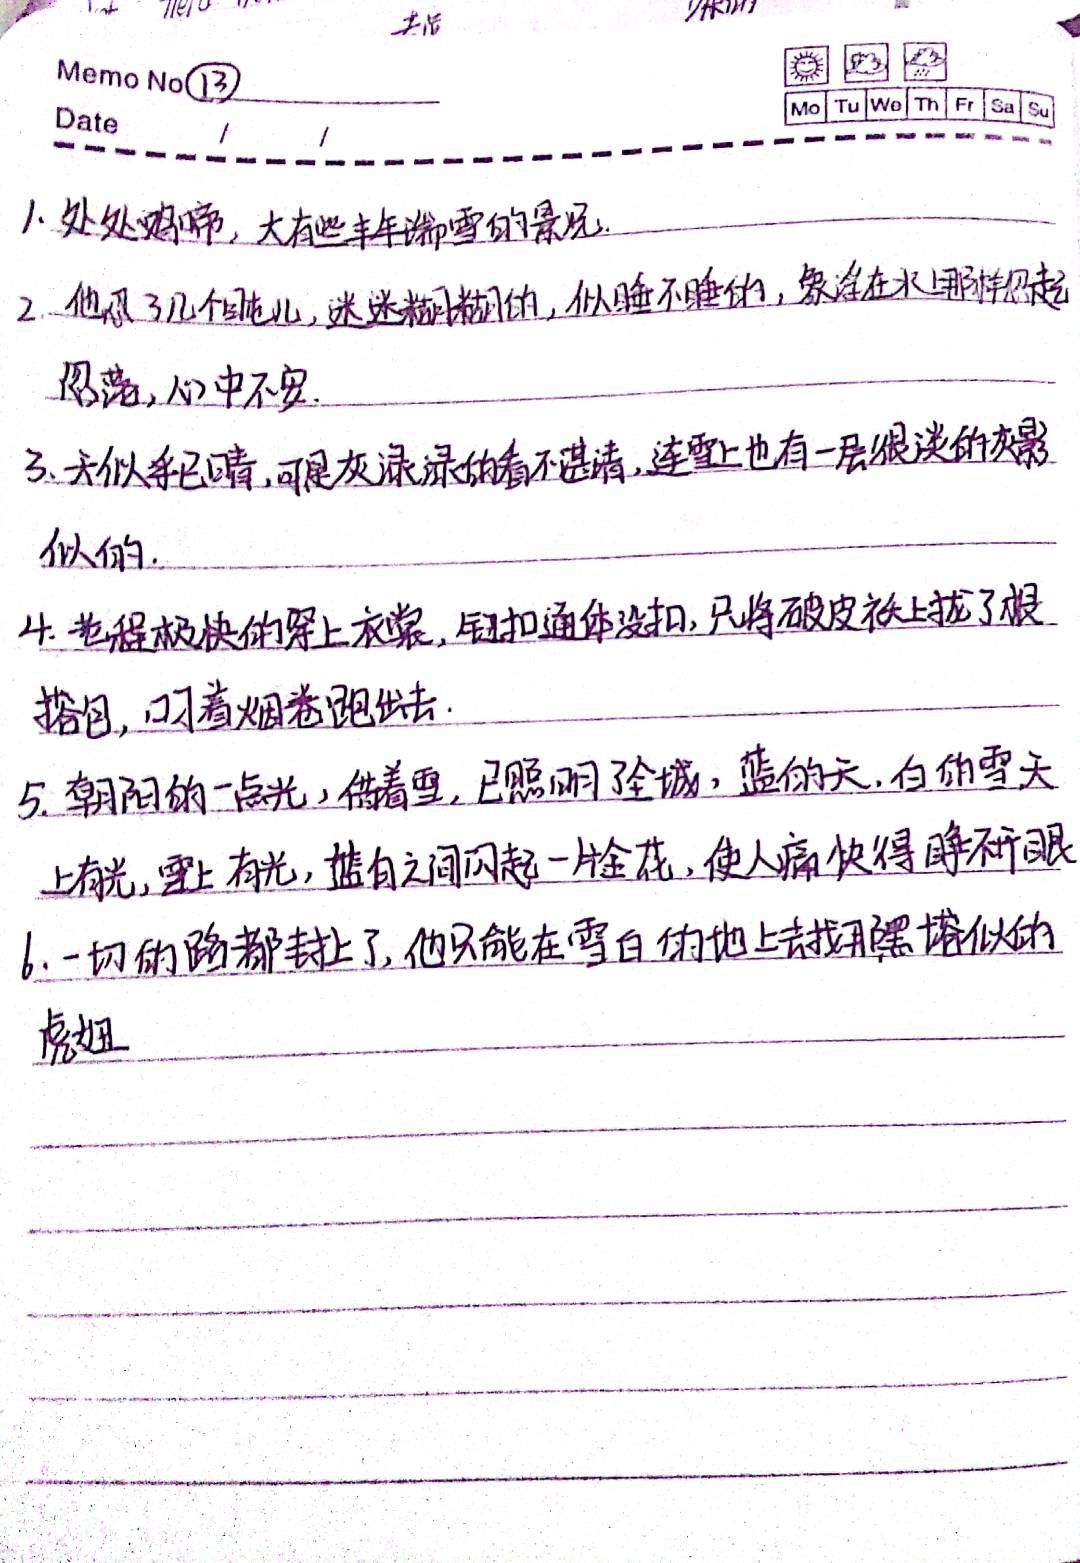 Memo No 13
Mo Tu We Th Fr Sa Su
Date / /
1. 处处鸡啼, 大有些丰年瑞雪的景况.
2. 他忍了几个盹儿, 迷迷糊糊的, 似睡不睡的, 象浮在水上那样忽起
忽落, 心中不安.
3. 天似乎已晴, 可是灰渌渌的看不甚清, 连雪上也有一层很淡的灰影
似的.
4. 老程极快的穿上衣裳, 钮扣通体没扣, 只将破皮袄上拢了根
搭包, 叼着烟卷跑出去.
5. 朝阳的一点光, 借着雪, 已照明了全城, 蓝的天, 白的雪, 天
上有光, 雪上有光, 蓝白之间闪起一片金花, 使人痛快得睁不开眼
6. 一切的路都封上了, 他只能在雪白的地上去找那黑塔似的
虎妞